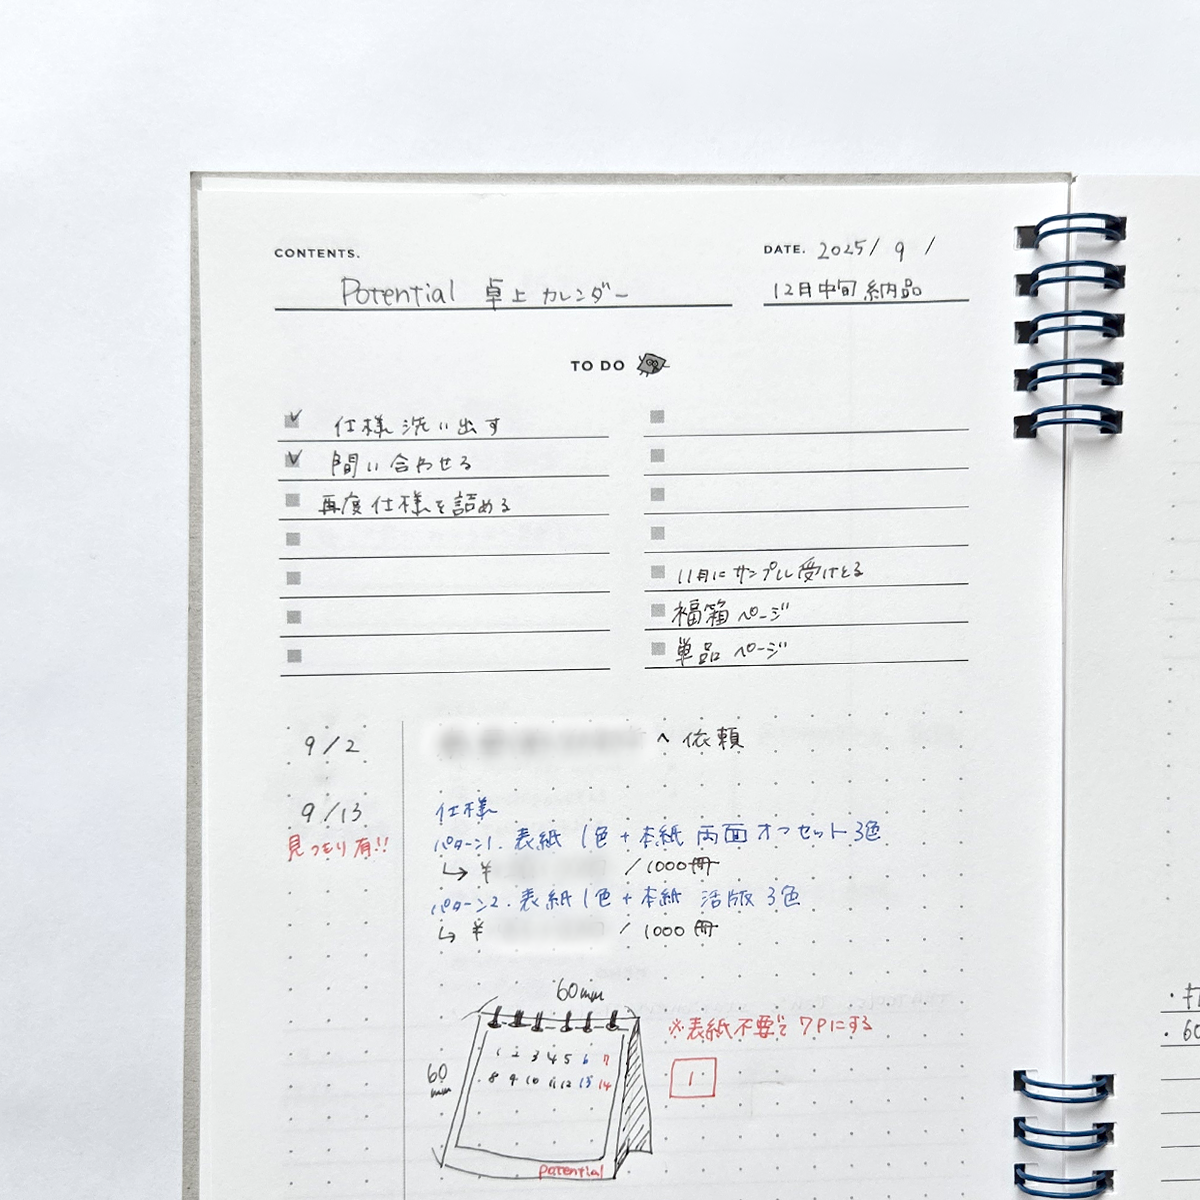 CONTENTS.
DATE. 2025/ 9 /
Potential 卓上カレンダー
12月中旬 納品
TO DO
仕様 洗い出す
問い合わせる
再度仕様を詰める
11月にサンプル受けとる
福箱ページ
単品ページ
9/2
へ依頼
9/13
見つもり有!!
仕様
パターン1. 表紙 1色 + 本紙 両面オフセット3色
↳ ¥ /1000冊
パターン2. 表紙1色 + 本紙 活版 3色
↳ ¥ / 1000冊
60mm
※表紙不要で 7Pにする
1 2 3 4 5 6 7
60mm
8 9 10 11 12 13 14
1
potential
・60